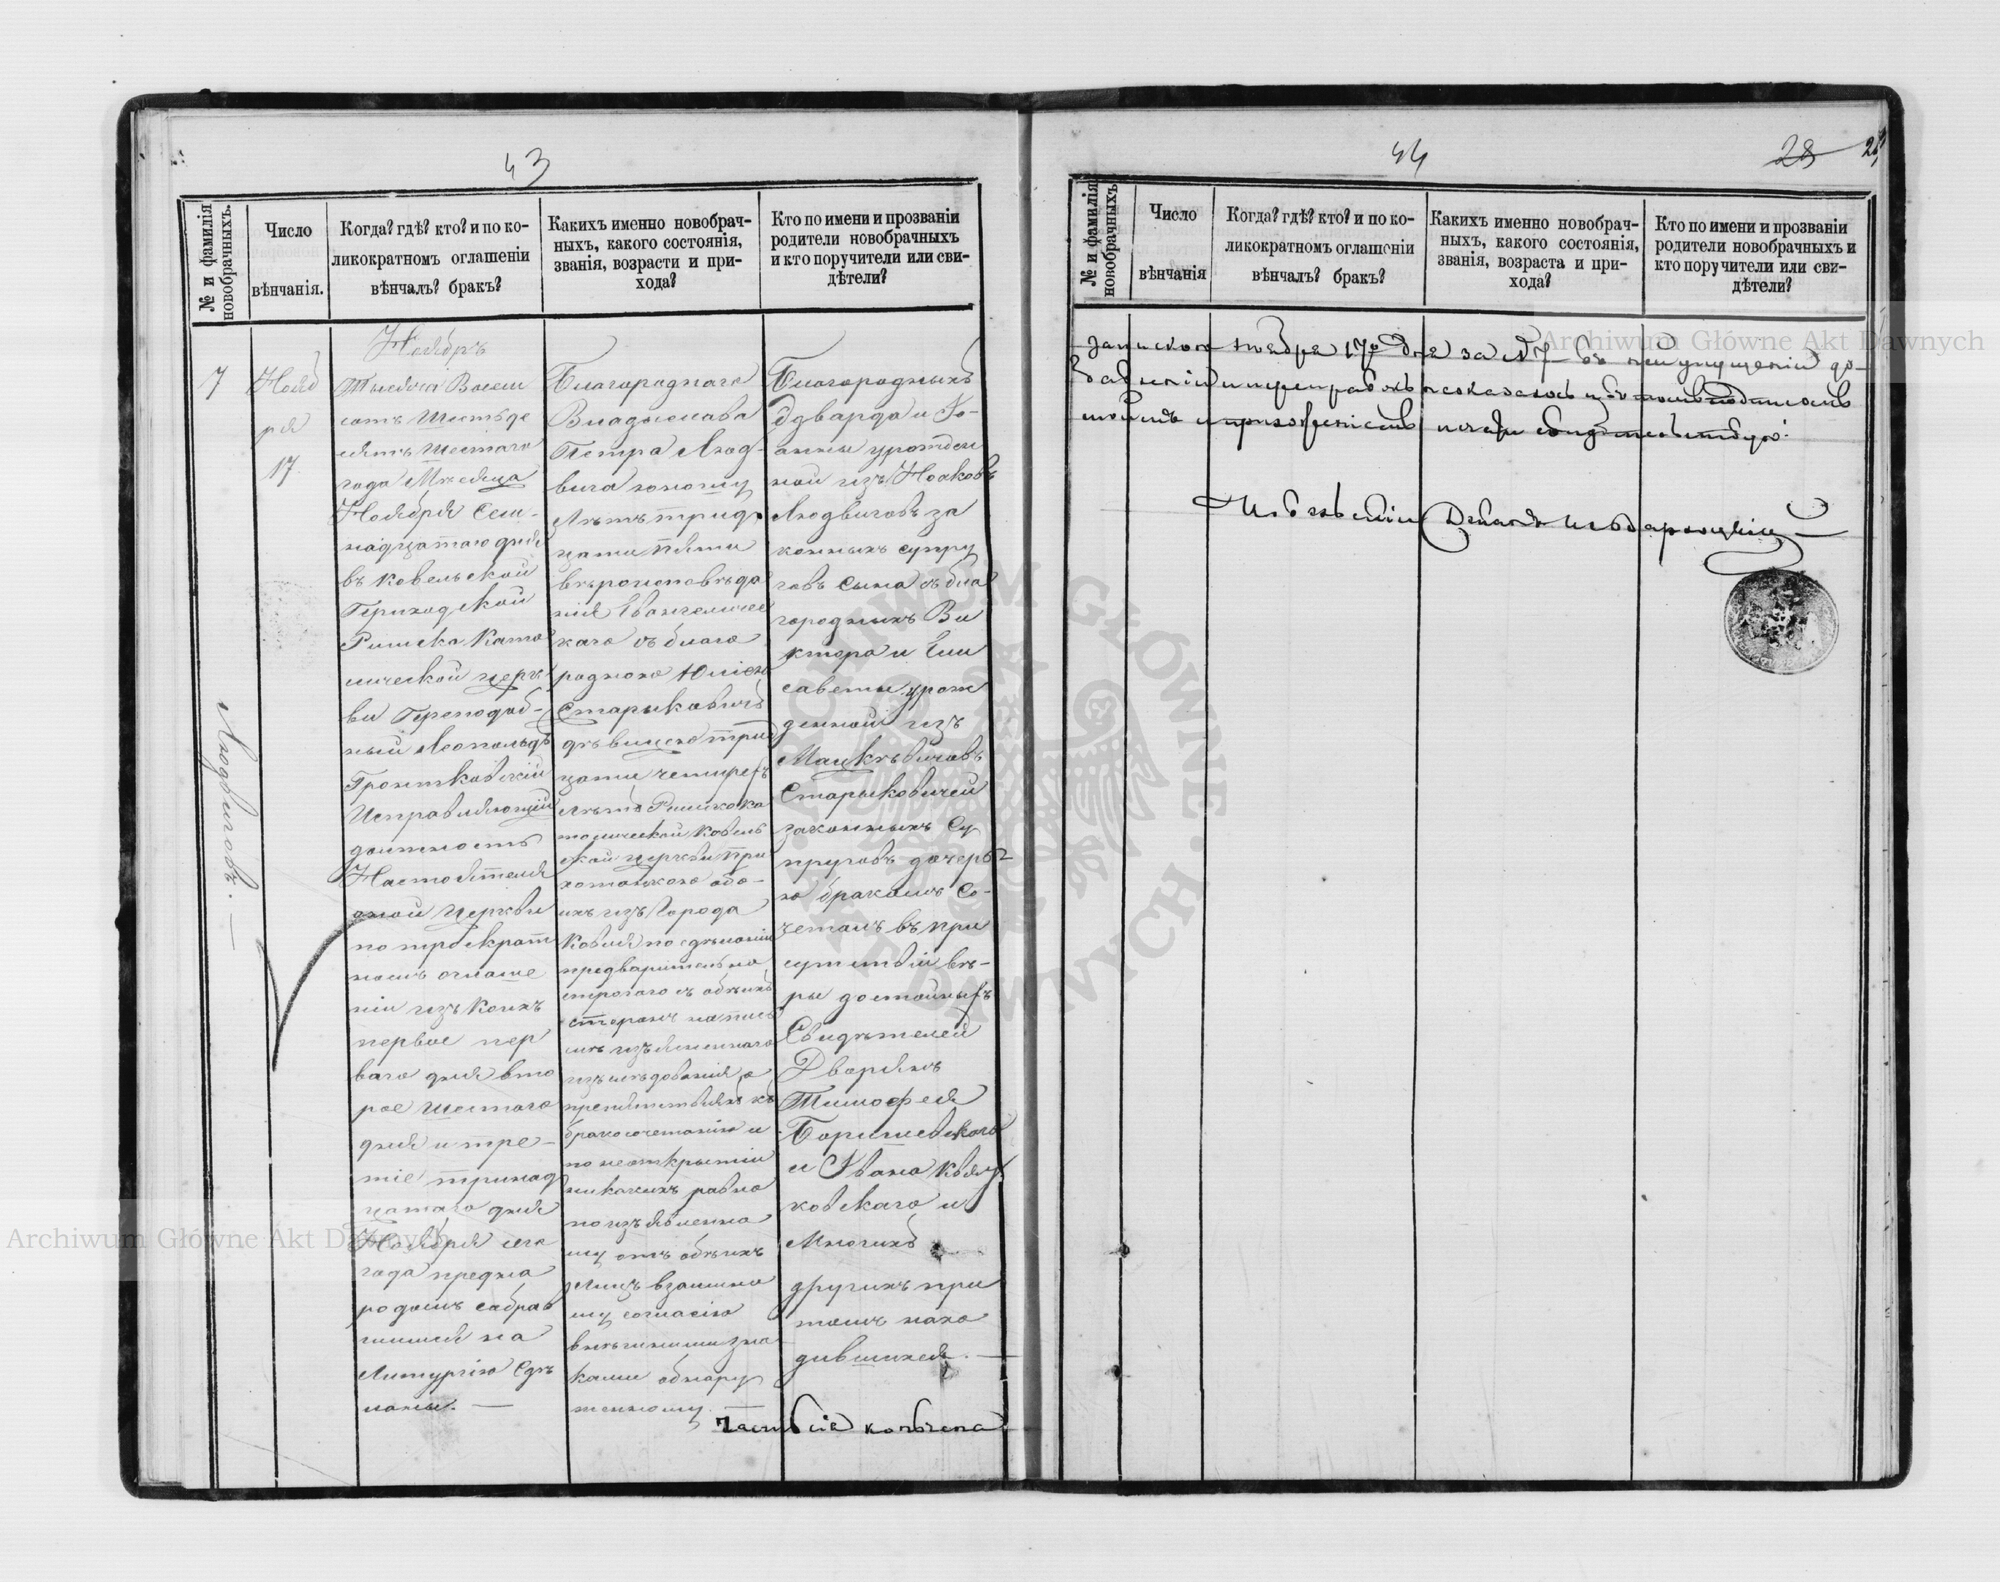 43
№ и фамилія
новобрачныхъ.
Число
вѣнчанія.
Когда? гдѣ? кто? и по ко-
ликократномъ оглашеніи
вѣнчалъ? бракъ?
Каихъ именно новобрач-
ныхъ, какого состоянія,
званія, возрасти и при-
хода?
Кто по имени и прозванію
родители новобрачныхъ
и кто поручители или сви-
дѣтели?
7
Людвиговъ. —
Нояб
ря
17.
Ноябрь
Тысяча Восем
сотъ Шестьде
сятъ Шестаго
года Мѣсяца
Ноября Сем-
надцатаго дня
въ Ковельской
Приходской
Римско Като
лической церк
ви Преподоб-
ный Леопольдъ
Гронтковскій
Исправляющій
должность
Настоятеля
оной Церкви
по троекрат
номъ оглаше
ніи изъ коихъ
первое пер
ваго дня вто
рое шестаго
дня и тре-
тіе тринад
цатаго дня
Ноября сего
года предна
родомъ собрав
шимся на
Литургію Сдѣ
ланы. —
Благороднаго
Владыслава
Петра Люд-
вига юношу
Лѣтъ трид
цати пяти
вѣроисповѣда
нія Евангеличес
каго съ благо
родною Юліею
Старыковичъ
дѣвицею трид
цати четырехъ
лѣтъ Римскока
толической Ковель
ской церкви при
хожанкою обо-
ихъ изъ Города
Ковля по сдѣланіи
предварительно
строгаго съ обѣихъ
сторонъ на пись
мѣ изъясненнаго
изслѣдованія о
препятствіяхъ къ
бракосочетанію и
по неоткрытіи
никакихъ равно
по изъявленно
му отъ обѣихъ
Лицъ взаимно
му согласію
внѣшними зна
ками обнару
женному. —
Благородныхъ
Эдварда и Іо-
анны урожден
ной изъ Ноаковъ
Людвиговъ за
конныхъ супру
говъ сына съ бла
городныхъ Ви
ктора и Ели
саветы урож
денной изъ
Мацкѣвичовъ
Старыковичей
законныхъ Су
пруговъ дочерь
ю бракомъ Со-
четалъ въ при
сутствіи вѣ-
ры достойныхъ
Свидѣтелей
Дворянъ
Тимофея
Боришевскаго
и Ивана Квят
ковскаго и
Многихъ
другихъ при
томъ нахо
дившихся. —
44
28
№ и фамилія
новобрачныхъ.
Число
вѣнчанія
Когда? гдѣ? кто? и по ко-
ликократномъ оглашеніи
вѣнчалъ? бракъ?
Какихъ именно новобрач-
ныхъ, какого состоянія,
званія, возраста и при-
хода?
Кто по имени и прозваніи
родители новобрачныхъ и
кто поручители или сви-
дѣтели?
запискою ноября 17го дня за №7
печати свидѣтельствую.
Archiwum Główne Akt Dawnych
Archiwum Główne Akt Dawnych
ARCHIWUM GŁÓWNE AKT DAWNYCH